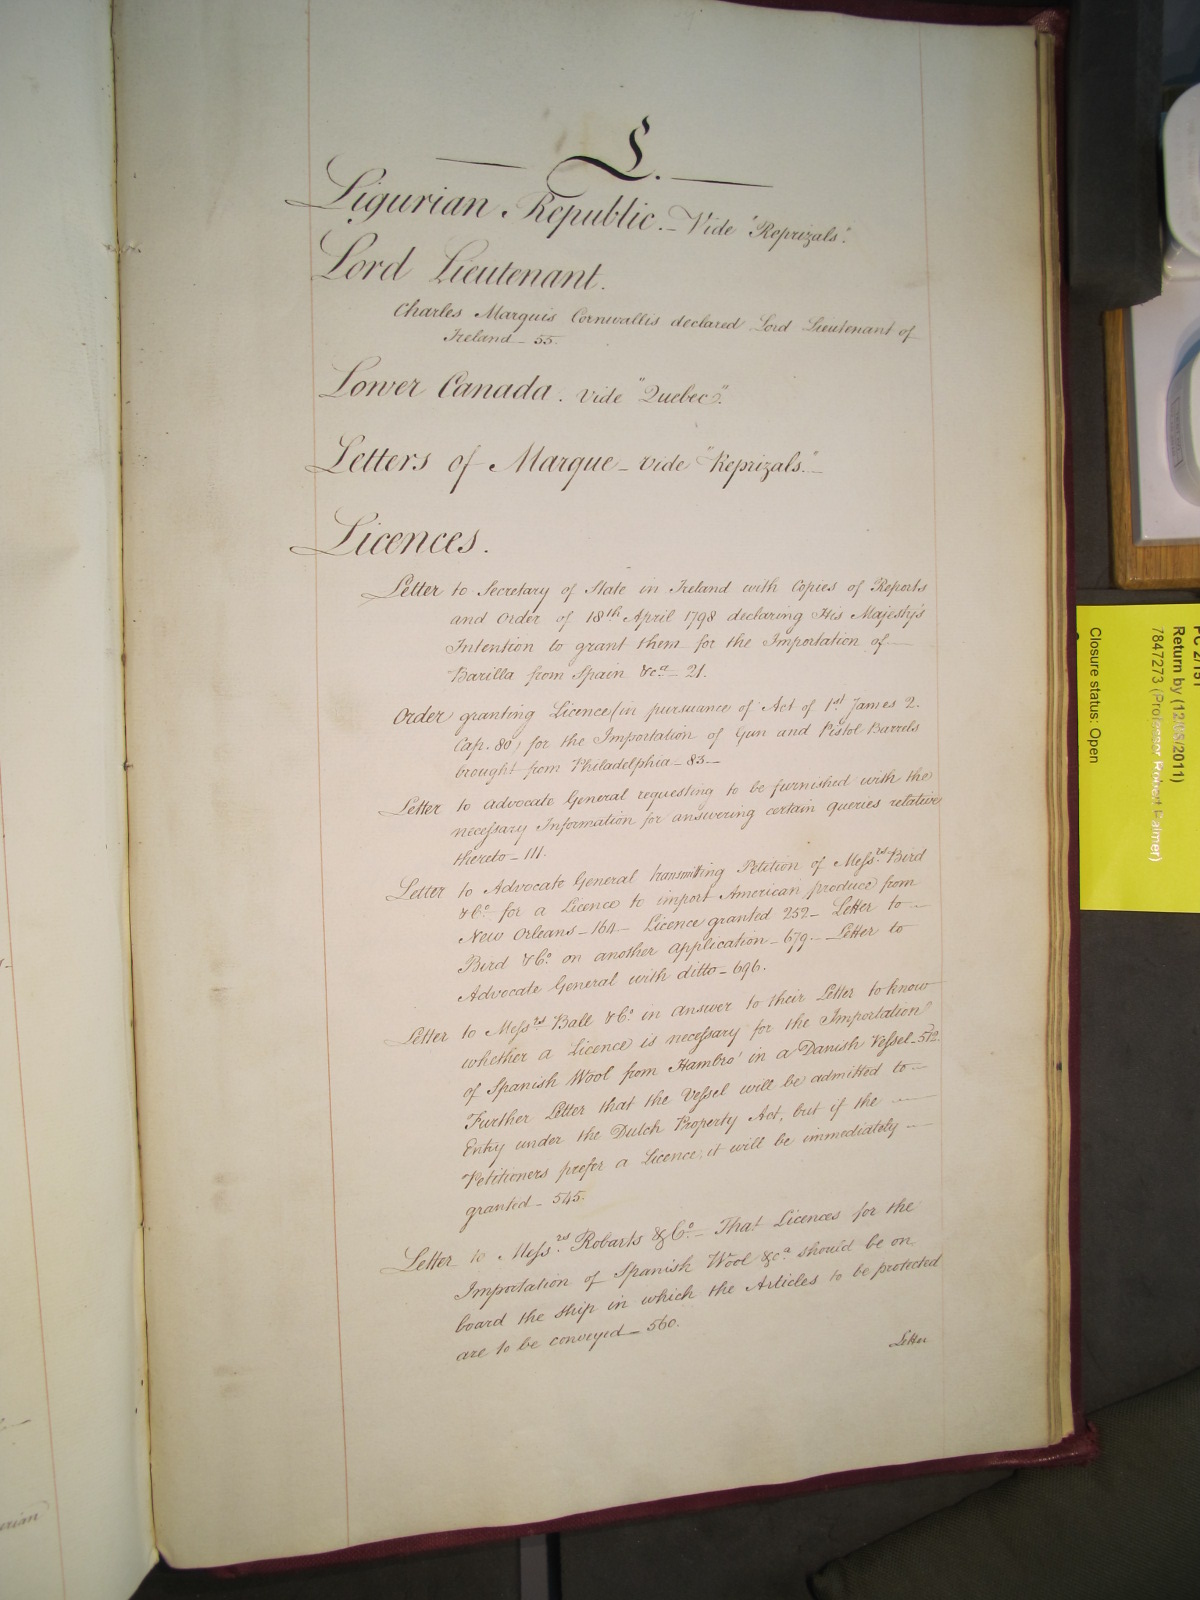 L.
Ligurian Republic. – Vide "Reprizals".
Lord Lieutenant.
Charles Marquis Cornwallis declared Lord Lieutenant of
Ireland – 55.
Lower Canada. vide "Quebec".
Letters of Marque – vide "Reprizals." –
Licences.
Letter to Secretary of State in Ireland with Copies of Reports
and Order of 18th April 1798 declaring His Majesty's
Intention to grant them for the Importation of —
Barilla from Spain &ca – 21.
Order granting Licence (in pursuance of Act of 1st James 2.
Cap. 80) for the Importation of Gun and Pistol Barrels
brought from Philadelphia – 83 –
Letter to Advocate General requesting to be furnished with the
necessary Information for answering certain queries relative
thereto – 111.
Letter to Advocate General transmitting Petition of Messrs. Bird
& Co. for a Licence to import American produce from
New Orleans – 164 – Licence granted 252 – Letter to —
Bird & Co. on another application – 679. – Letter to
Advocate General with ditto – 696.
Letter to Messrs. Ball & Co. in answer to their Letter to know
whether a Licence is necessary for the Importation
of Spanish Wool from Hambro' in a Danish Vessel – 512.
Further Letter that the Vessel will be admitted to —
Entry under the Dutch Property Act, but if the —
Petitioners prefer a Licence, it will be immediately —
granted – 545.
Letter to Messrs. Robarts & Co. – That Licences for the
Importation of Spanish Wool &ca should be on
board the Ship in which the Articles to be protected
are to be conveyed – 560.
Letter
PC 2/151
Return by (12/08/2011)
7847273 (Professor Robert Palmer)
Closure status: Open